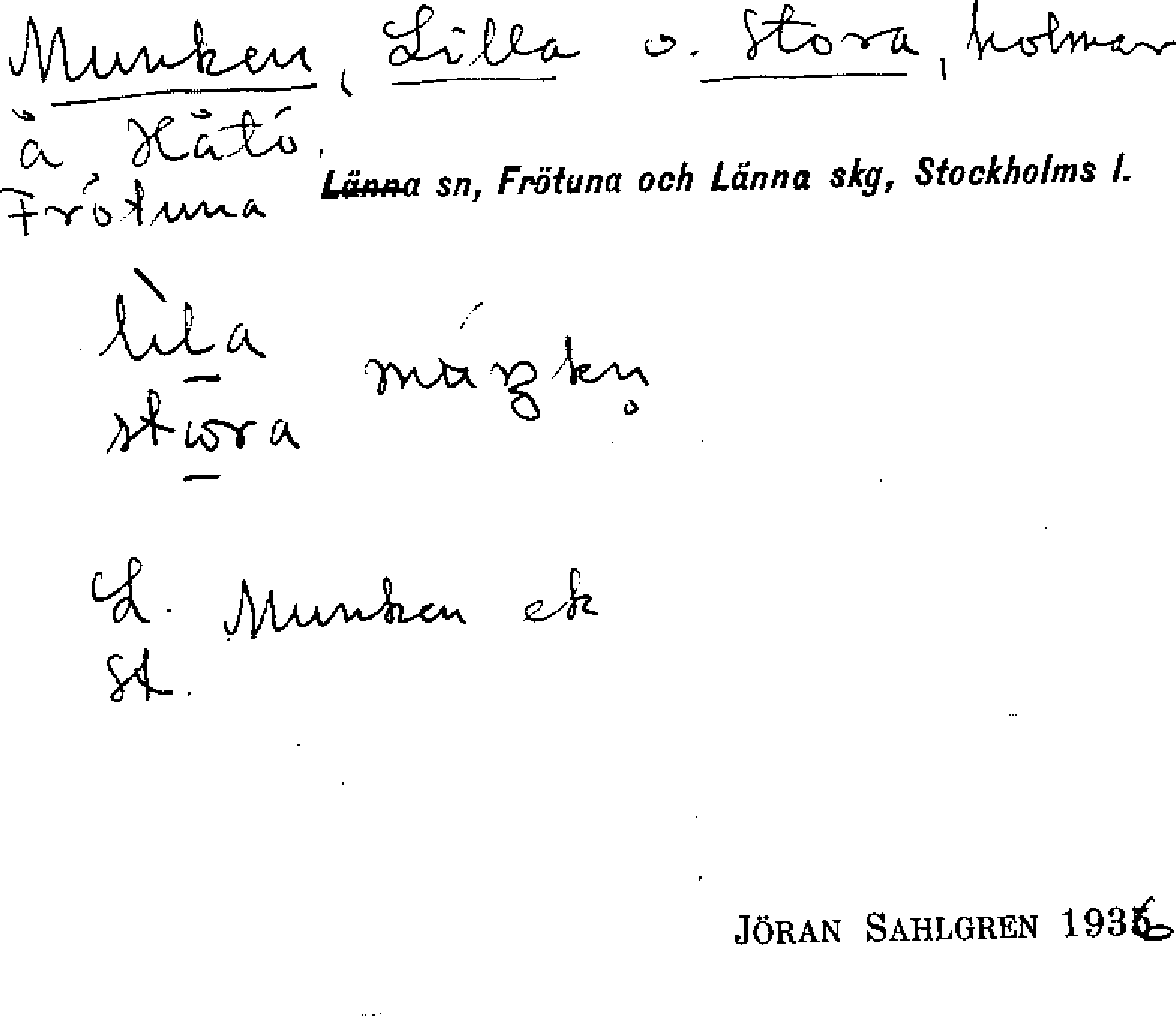 Munken, Lilla o. Stora, holmar
å Hätö.
Frötuna Länna sn, Frötuna och Länna skg, Stockholms l.
lìla
stora múŋkn̥
L. Munken ek
St.
JÖRAN SAHLGREN 1936